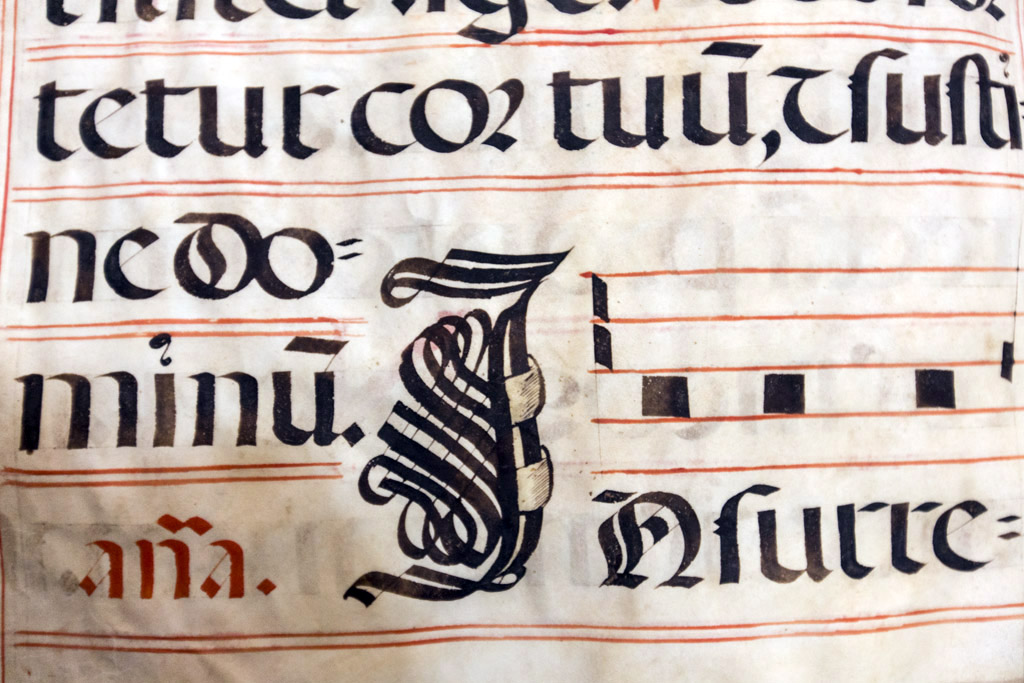 tetur cor tuū, ⁊ susti-
ne do=
minū.
añã.
INsurre=